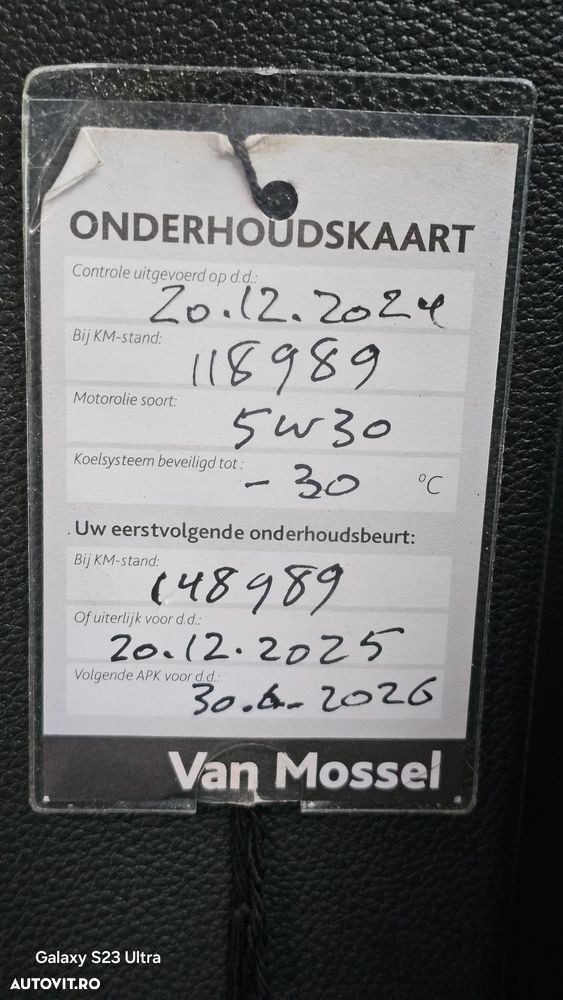 ONDERHOUDSKAART
Controle uitgevoerd op d.d.:
20.12.2024
Bij KM-stand:
118989
Motorolie soort:
5W30
Koelsysteem beveiligd tot:
-30 °C
Uw eerstvolgende onderhoudsbeurt:
Bij KM-stand:
148989
Of uiterlijk voor d.d.:
20.12.2025
Volgende APK voor d.d.:
30.6-2026
Van Mossel
Galaxy S23 Ultra
AUTOVIT.RO